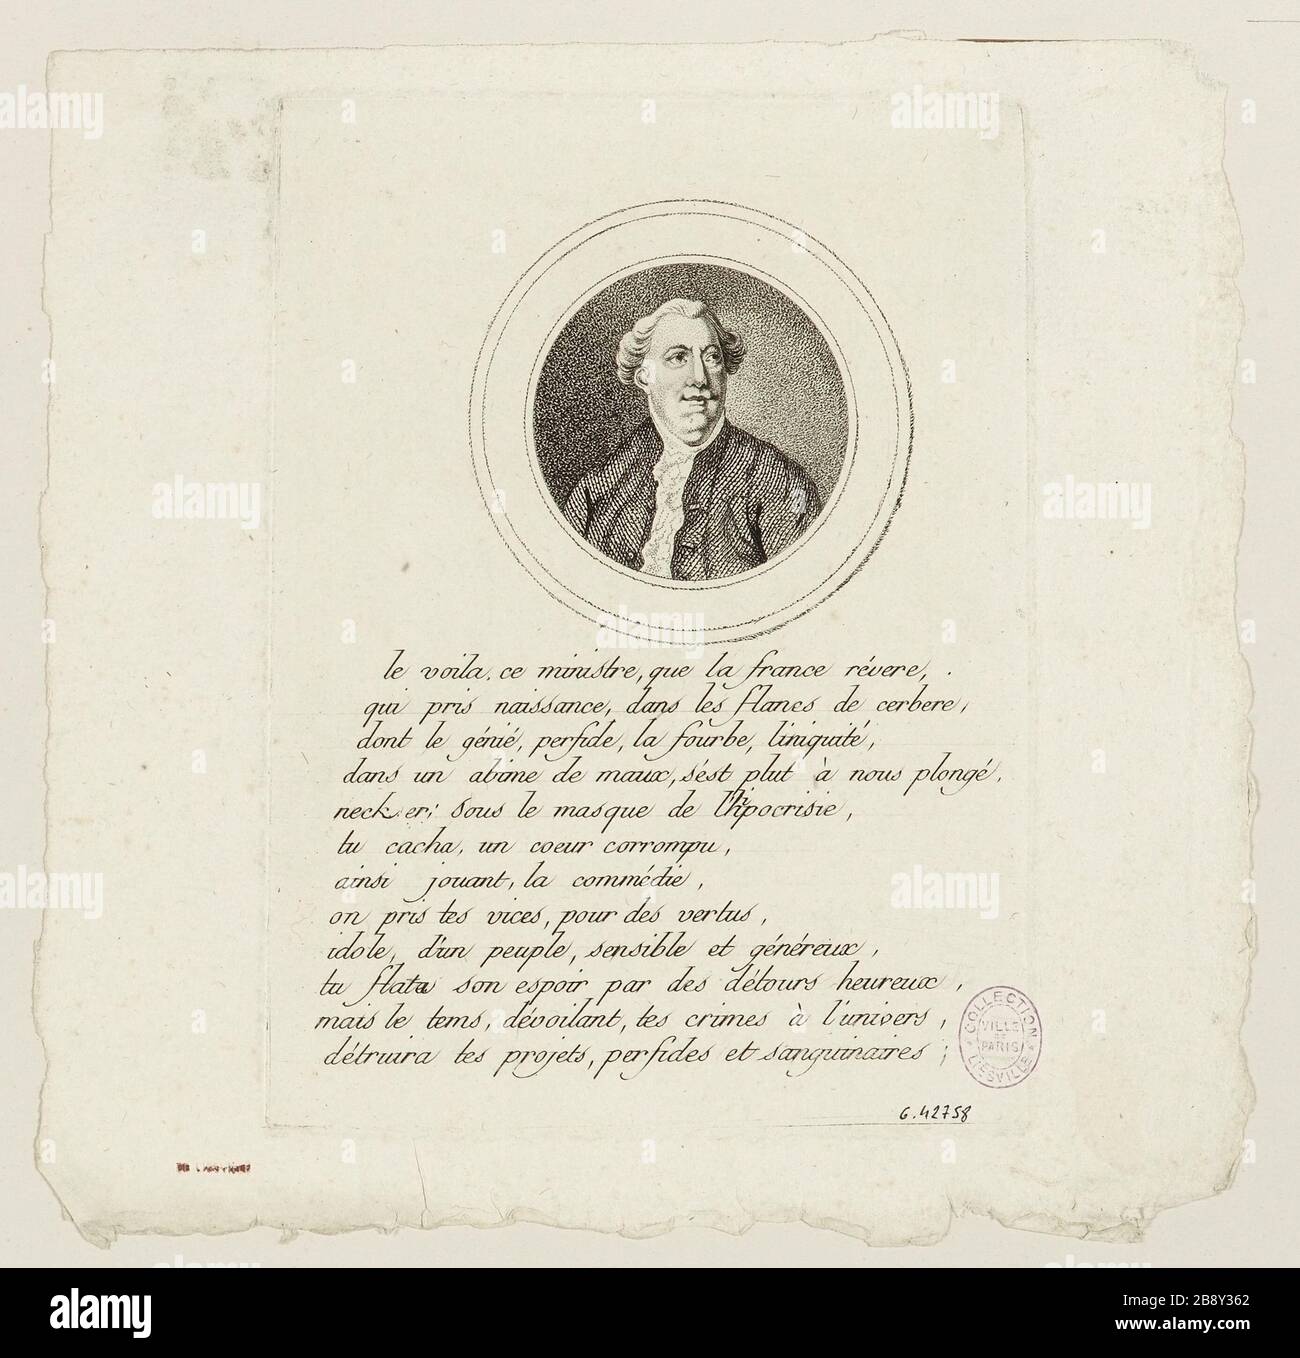 le voila, ce ministre, que la france révere,
qui pris naissance, dans les flancs de cerbere,
dont le génié, perfide, la fourbe, liniquité,
dans un abime de maux, sést plut à nous plongé,
necker; sous le masque de l'hipocrisie,
tu cacha, un coeur corrompu,
ainsi jouant, la commédie,
on pris tes vices, pour des vertus,
idole, d'un peuple, sensible et généreux,
tu flata son espoir par des détours heureux,
mais le tems, dévoilant, tes crimes à l'univers,
détruira tes projets, perfides et sanguinaires;
COLLECTION
VILLE
DE
PARIS
LIESVILLE
G.42758
alamy
Image ID: 2B8Y362
www.alamy.com